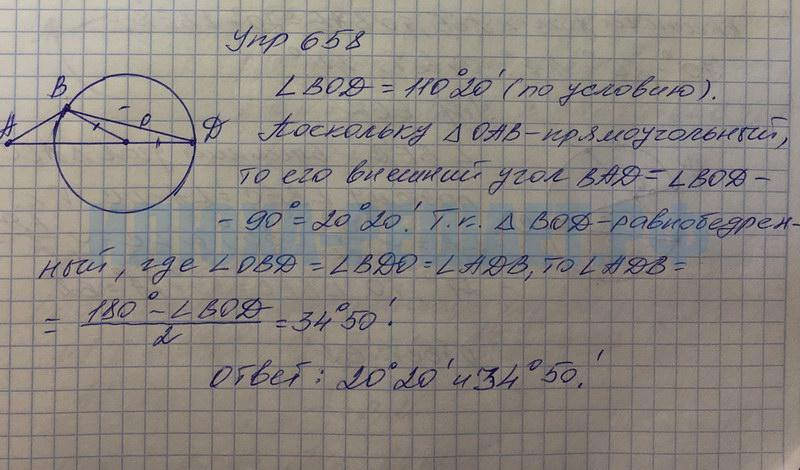 Упр 658
B
A
O
D
∠BOD = 110°20' (по условию).
Поскольку △OAB-прямоугольный,
то его внешний угол BAD = ∠BOD -
- 90° = 20°20'. Т.к. △ BOD-равнобедрен-
ный, где ∠OBD = ∠BDO = ∠ADB, то ∠ADB =
= (180° - ∠BOD)/2 = 34°50'.
Ответ: 20°20' и 34°50'.